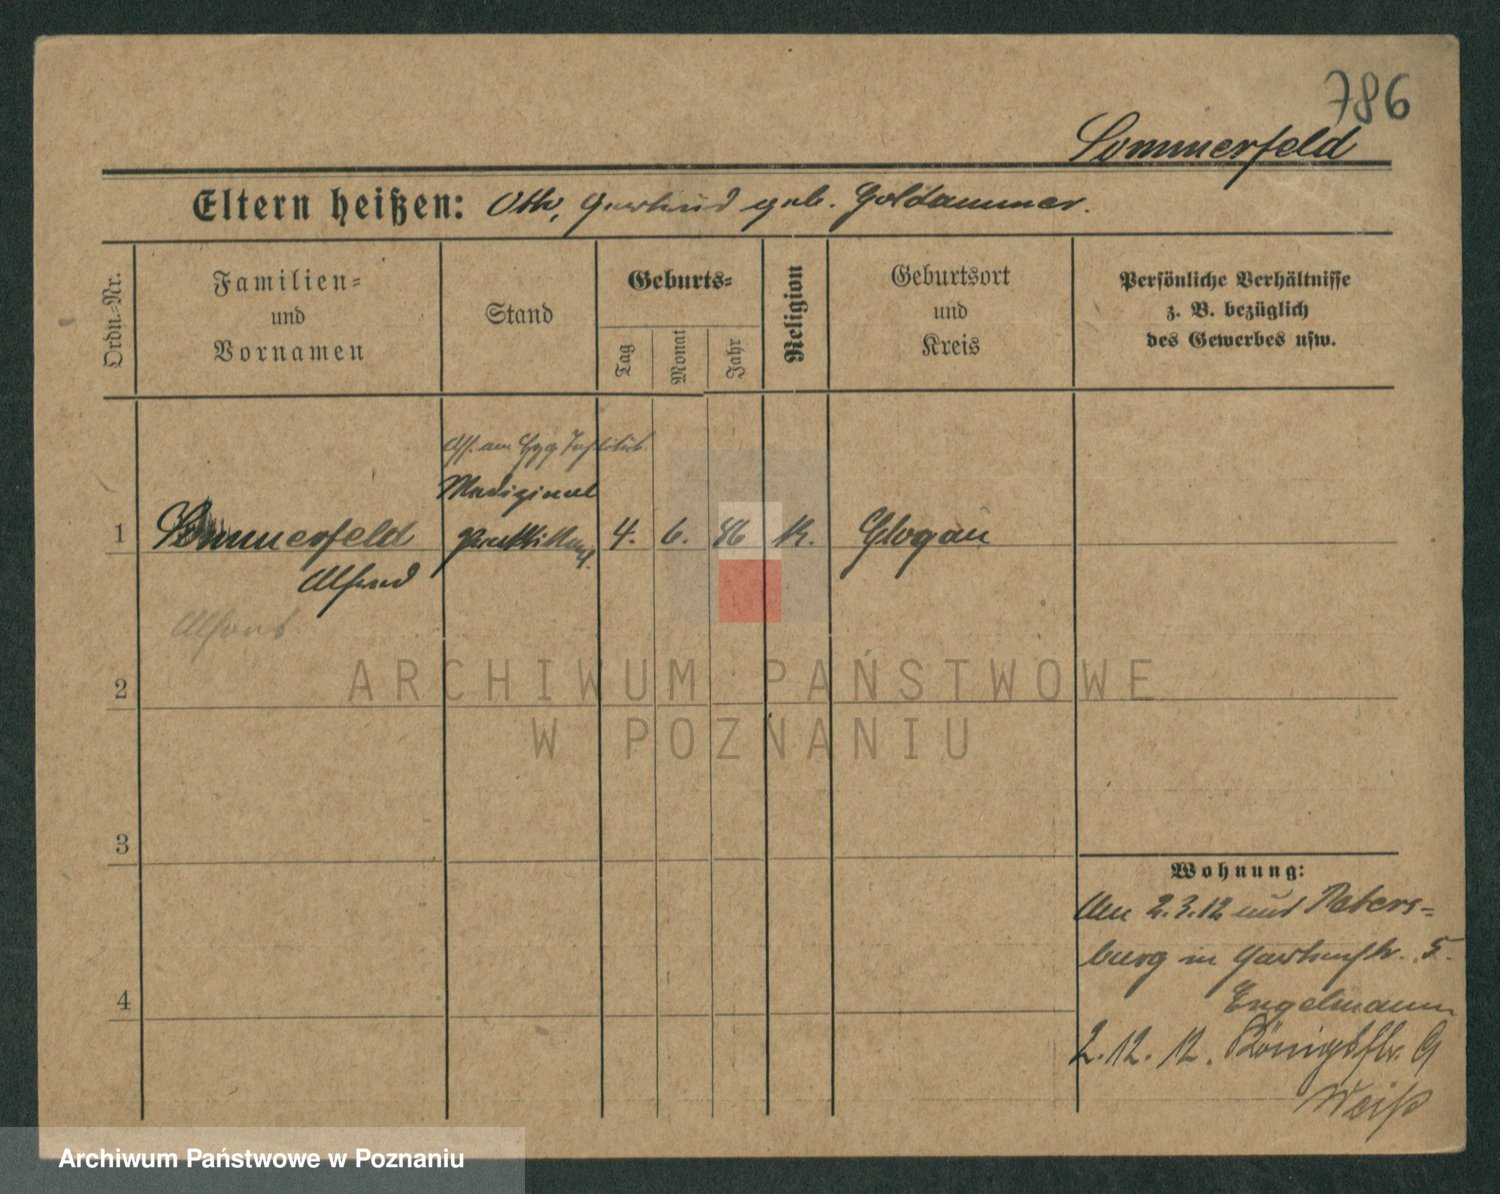 786
Sommerfeld
Eltern heißen: Otto, Gertrud geb. Goldammer.
Ordn.-Nr.
Familien-
und
Vornamen
Stand
Geburts-
Tag
Monat
Jahr
Religion
Geburtsort
und
Kreis
Persönliche Verhältnisse
z. B. bezüglich
des Gewerbes usw.
Ass. am Hyg Institut.
Medizinal
1 Sommerfeld praktikant. 4. 6. 86 K. Glogau
Alfred
Alfons
2
3
4
Wohnung:
Am 2.3.12 aus Peters-
burg in Gartenstr. 5.
Engelmann
2.12.12. Königsstr. 9
Weiß
ARCHIWUM PAŃSTWOWE
W POZNANIU
Archiwum Państwowe w Poznaniu